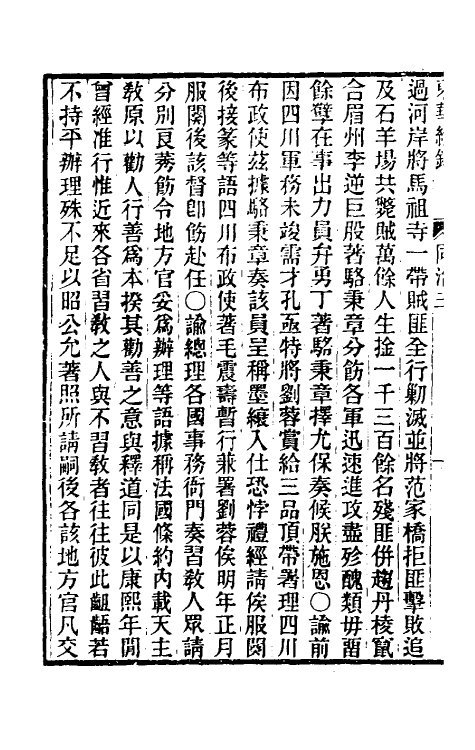 過河岸將馬祖寺一帶賊匪全行勦滅並將范家橋拒匪擊敗追
及石羊場共斃賊萬餘人生捦一千三百餘名殘匪併趨丹棱竄
合眉州李逆巨股著駱秉章分飭各軍迅速進攻盡殄醜類毋畱
餘孽在事出力員弁勇丁著駱秉章擇尤保奏候朕施恩〇諭前
因四川軍務未竣需才孔亟特將劉蓉賞給三品頂帶署理四川
布政使茲據駱秉章奏該員呈稱墨縗入仕恐悖禮經請俟服闋
後接篆等語四川布政使著毛震壽暫行兼署劉蓉俟明年正月
服闋後該督卽飭赴任〇諭總理各國事務衙門奏習敎人眾請
分別良莠飭令地方官妥爲辦理等語據稱法國條約內載天主
敎原以勸人行善爲本揆其勸善之意與釋道同是以康熙年閒
曾經准行惟近來各省習敎之人與不習敎者往往彼此齟齬若
不持平辦理殊不足以昭公允著照所請嗣後各該地方官凡交